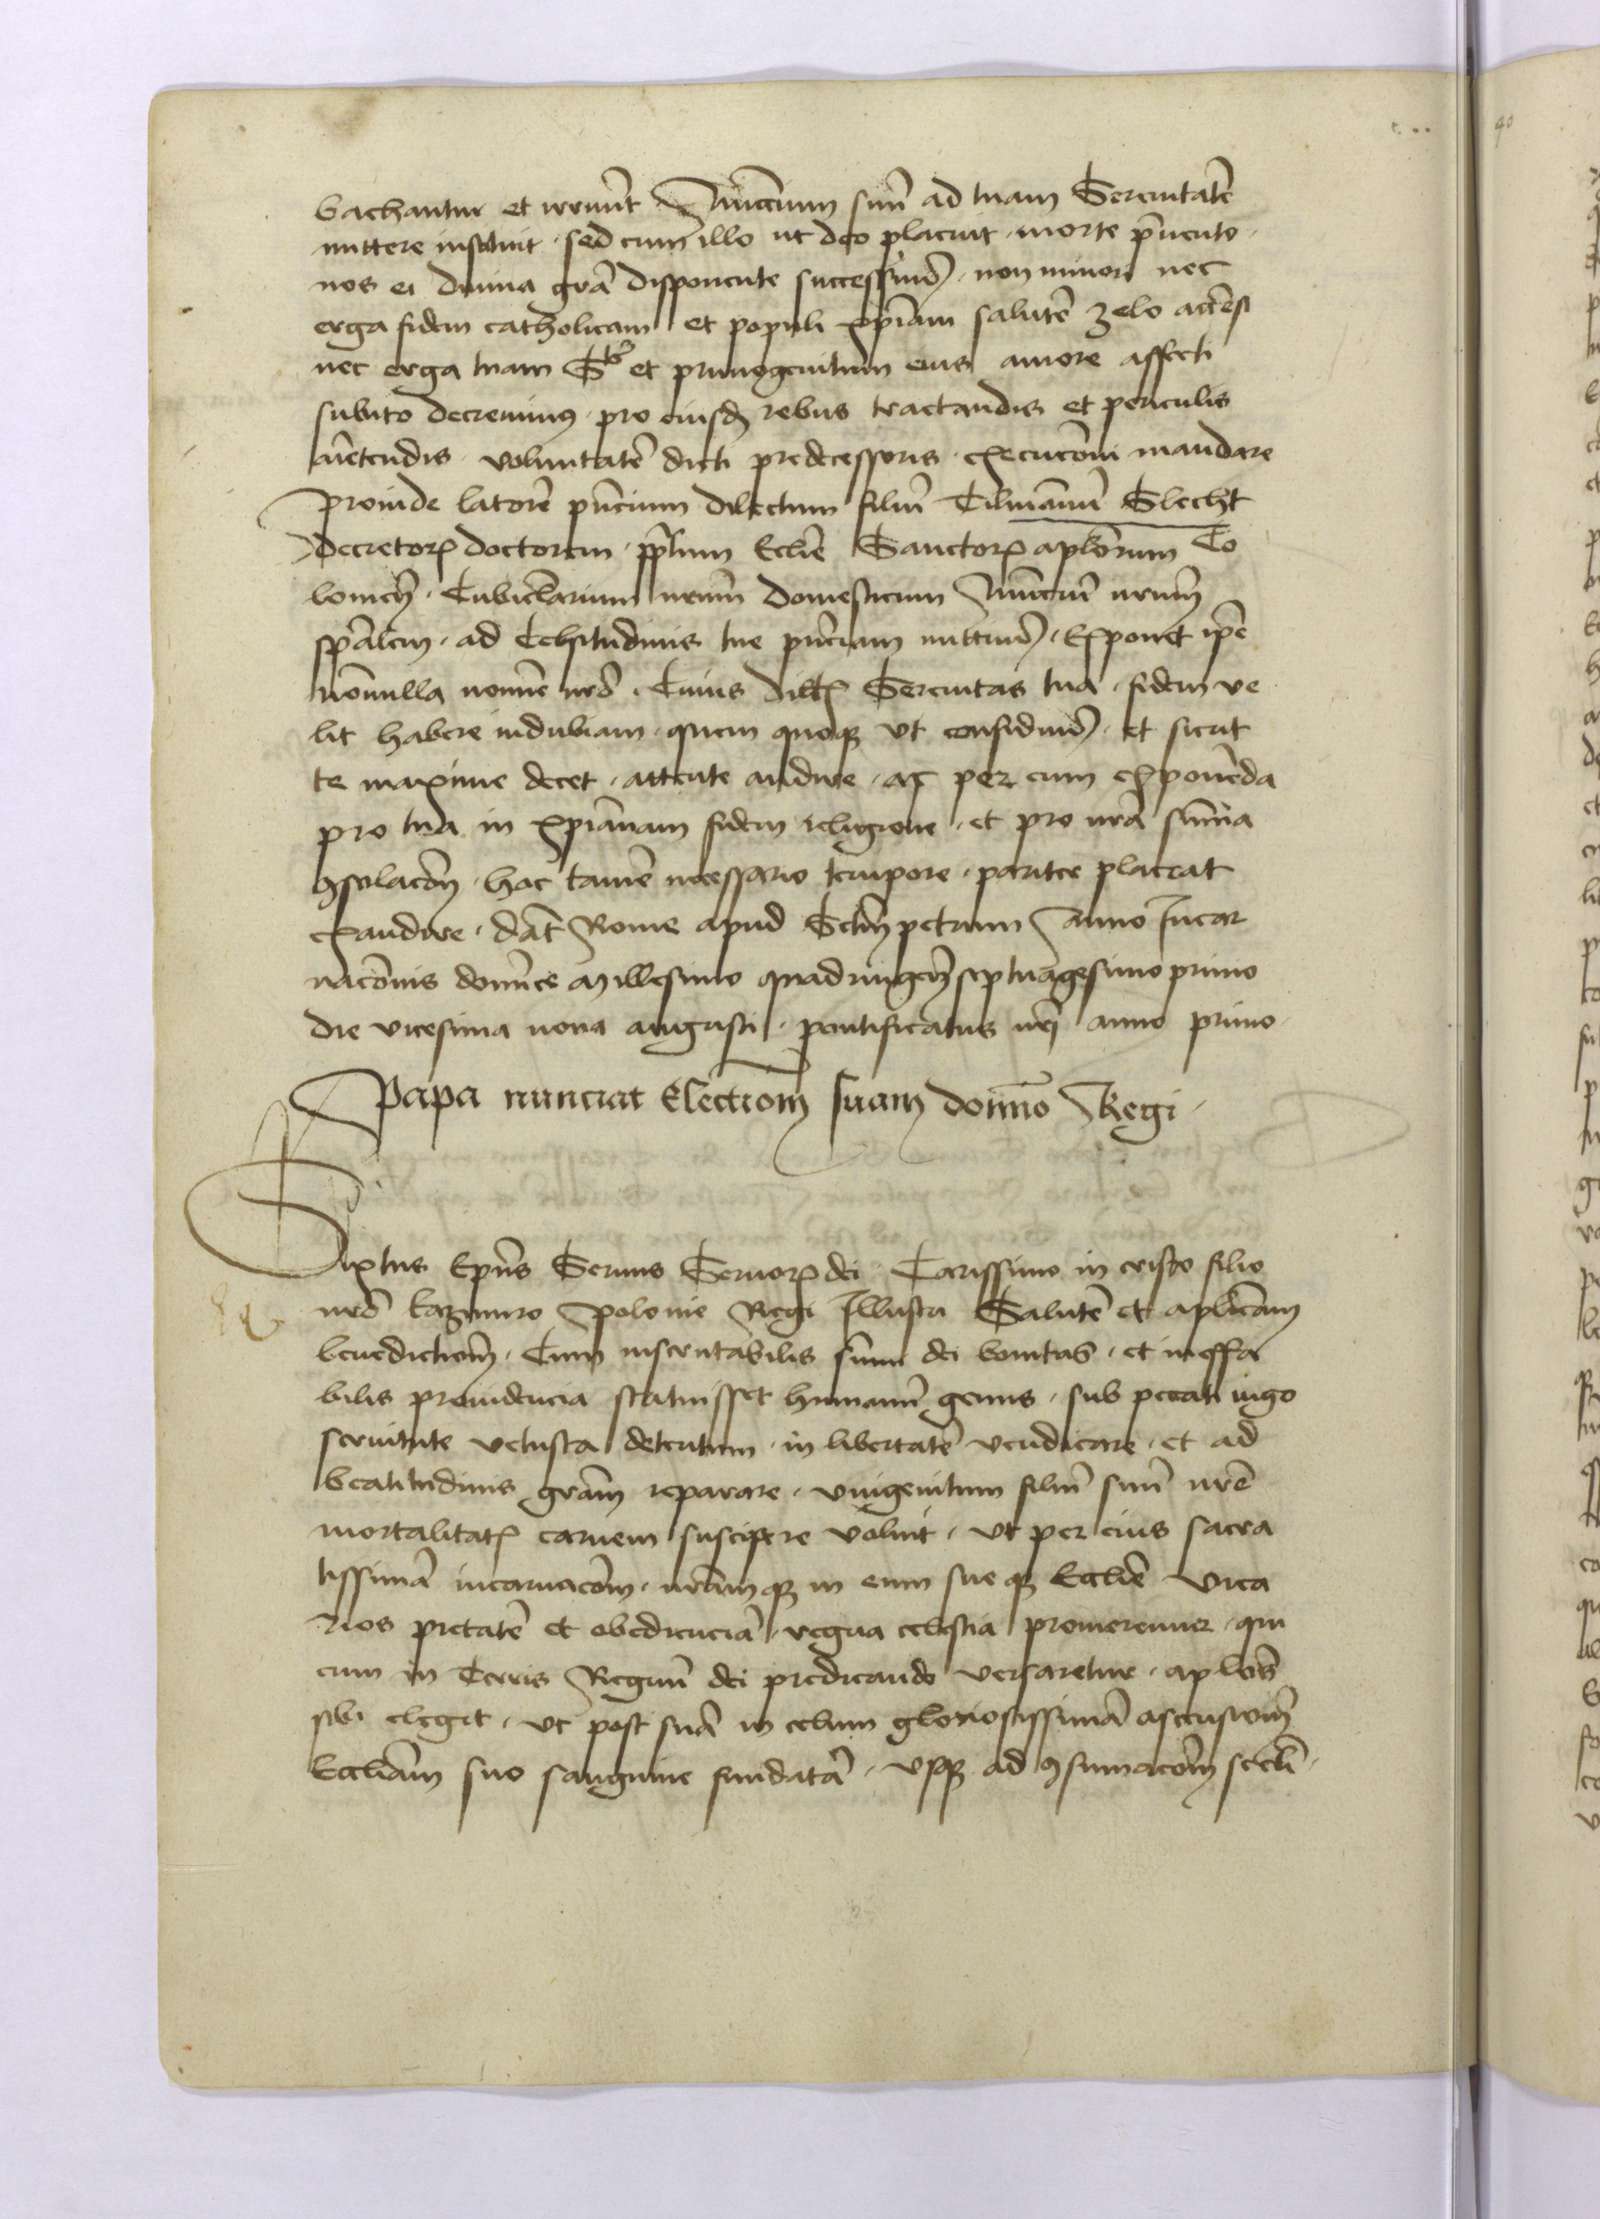 bachantur et irruūt Nūccium suū ad tuam Serenitatē
mittere instituit · sed cum illo ut deo placuit · morte p̄uento ·
nos ei diuina grā disponente successim⁹ · non minori nec
erga fidem catholicam et populi xp̄iani salutē zelo accēsi
nec erga tuam S^tē et primogenitum eius amore affecti
subito decreuim⁹ · pro eiusdē rebus tractandis et periculis
auertendis · voluntatē dicti predecessoris · execucōni mandare
Proinde latorē pn̄cium dilectum filiū Tilmannū Slecht
decretorꝝ doctorem · ppl̄tum Ecclīe Sanctorꝝ apl̄orum Co
loniēn̄ · Cubiclarium nrūm domesticum Nūcciū nrūm
spālem · ad Celsitudinis tue pn̄ciam mittim⁹ · Exponet ip̄e
nōnulla nomīe nrō · Cuius dict̄ Serenitas tua · fidem ve
lit habere indubiam · quem quoqꝫ ut confidim⁹ · et sicut
te maxime decet · attente audire · ac per eum exponēda
pro tua in xp̄ianam fidem religione · et pro nrā sūma
ꝯsolacōn̄ · hoc tamē necessario tempore · pariter placeat
exaudire · dat̄ Rome apud Sctm̄ petrum Anno Incar
nacōnis domīce Millesimo quadringen̄ septuagesimo primo
die vicesima nona augusti · pontificatus nr̄i anno primo ·
Papa nunciat Electiom̄ suam domīno Regi ·
Sixtus Ep̄us Seruus Seruorꝝ dei · Carissimo in cristo filio
nrō kazimiro Polonie Regi Illustri Salutē et apl̄icam
benedictiom̄ · Cum inscrutabilis sūmi dei bonitas · et ineffa
bilis prouidencia statuisset humanū genus · sub peccati iugo
seruitute vetusta detentum · in libertatē vendicare · et ad
beatitudinis grām reparare · vnigenitum filiū suū nrē
mortalitatꝭ carnem suscipere voluit · Ut per eius sacra
tissimā incarnacōm · nrāmqꝫ in eum sueqꝫ Ecclīe vica
rios pietatē et obedienciā · regna celestia promeremur · qui
cum in Terris Regnū dei predicando versaretur · ap̄los
sibi elegit · Ut post suā in celum gloriosissimā ascensiom̄
Ecclīam suo sanguine fundatā · vsqꝫ ad ꝯsumacōm secl̄i ·